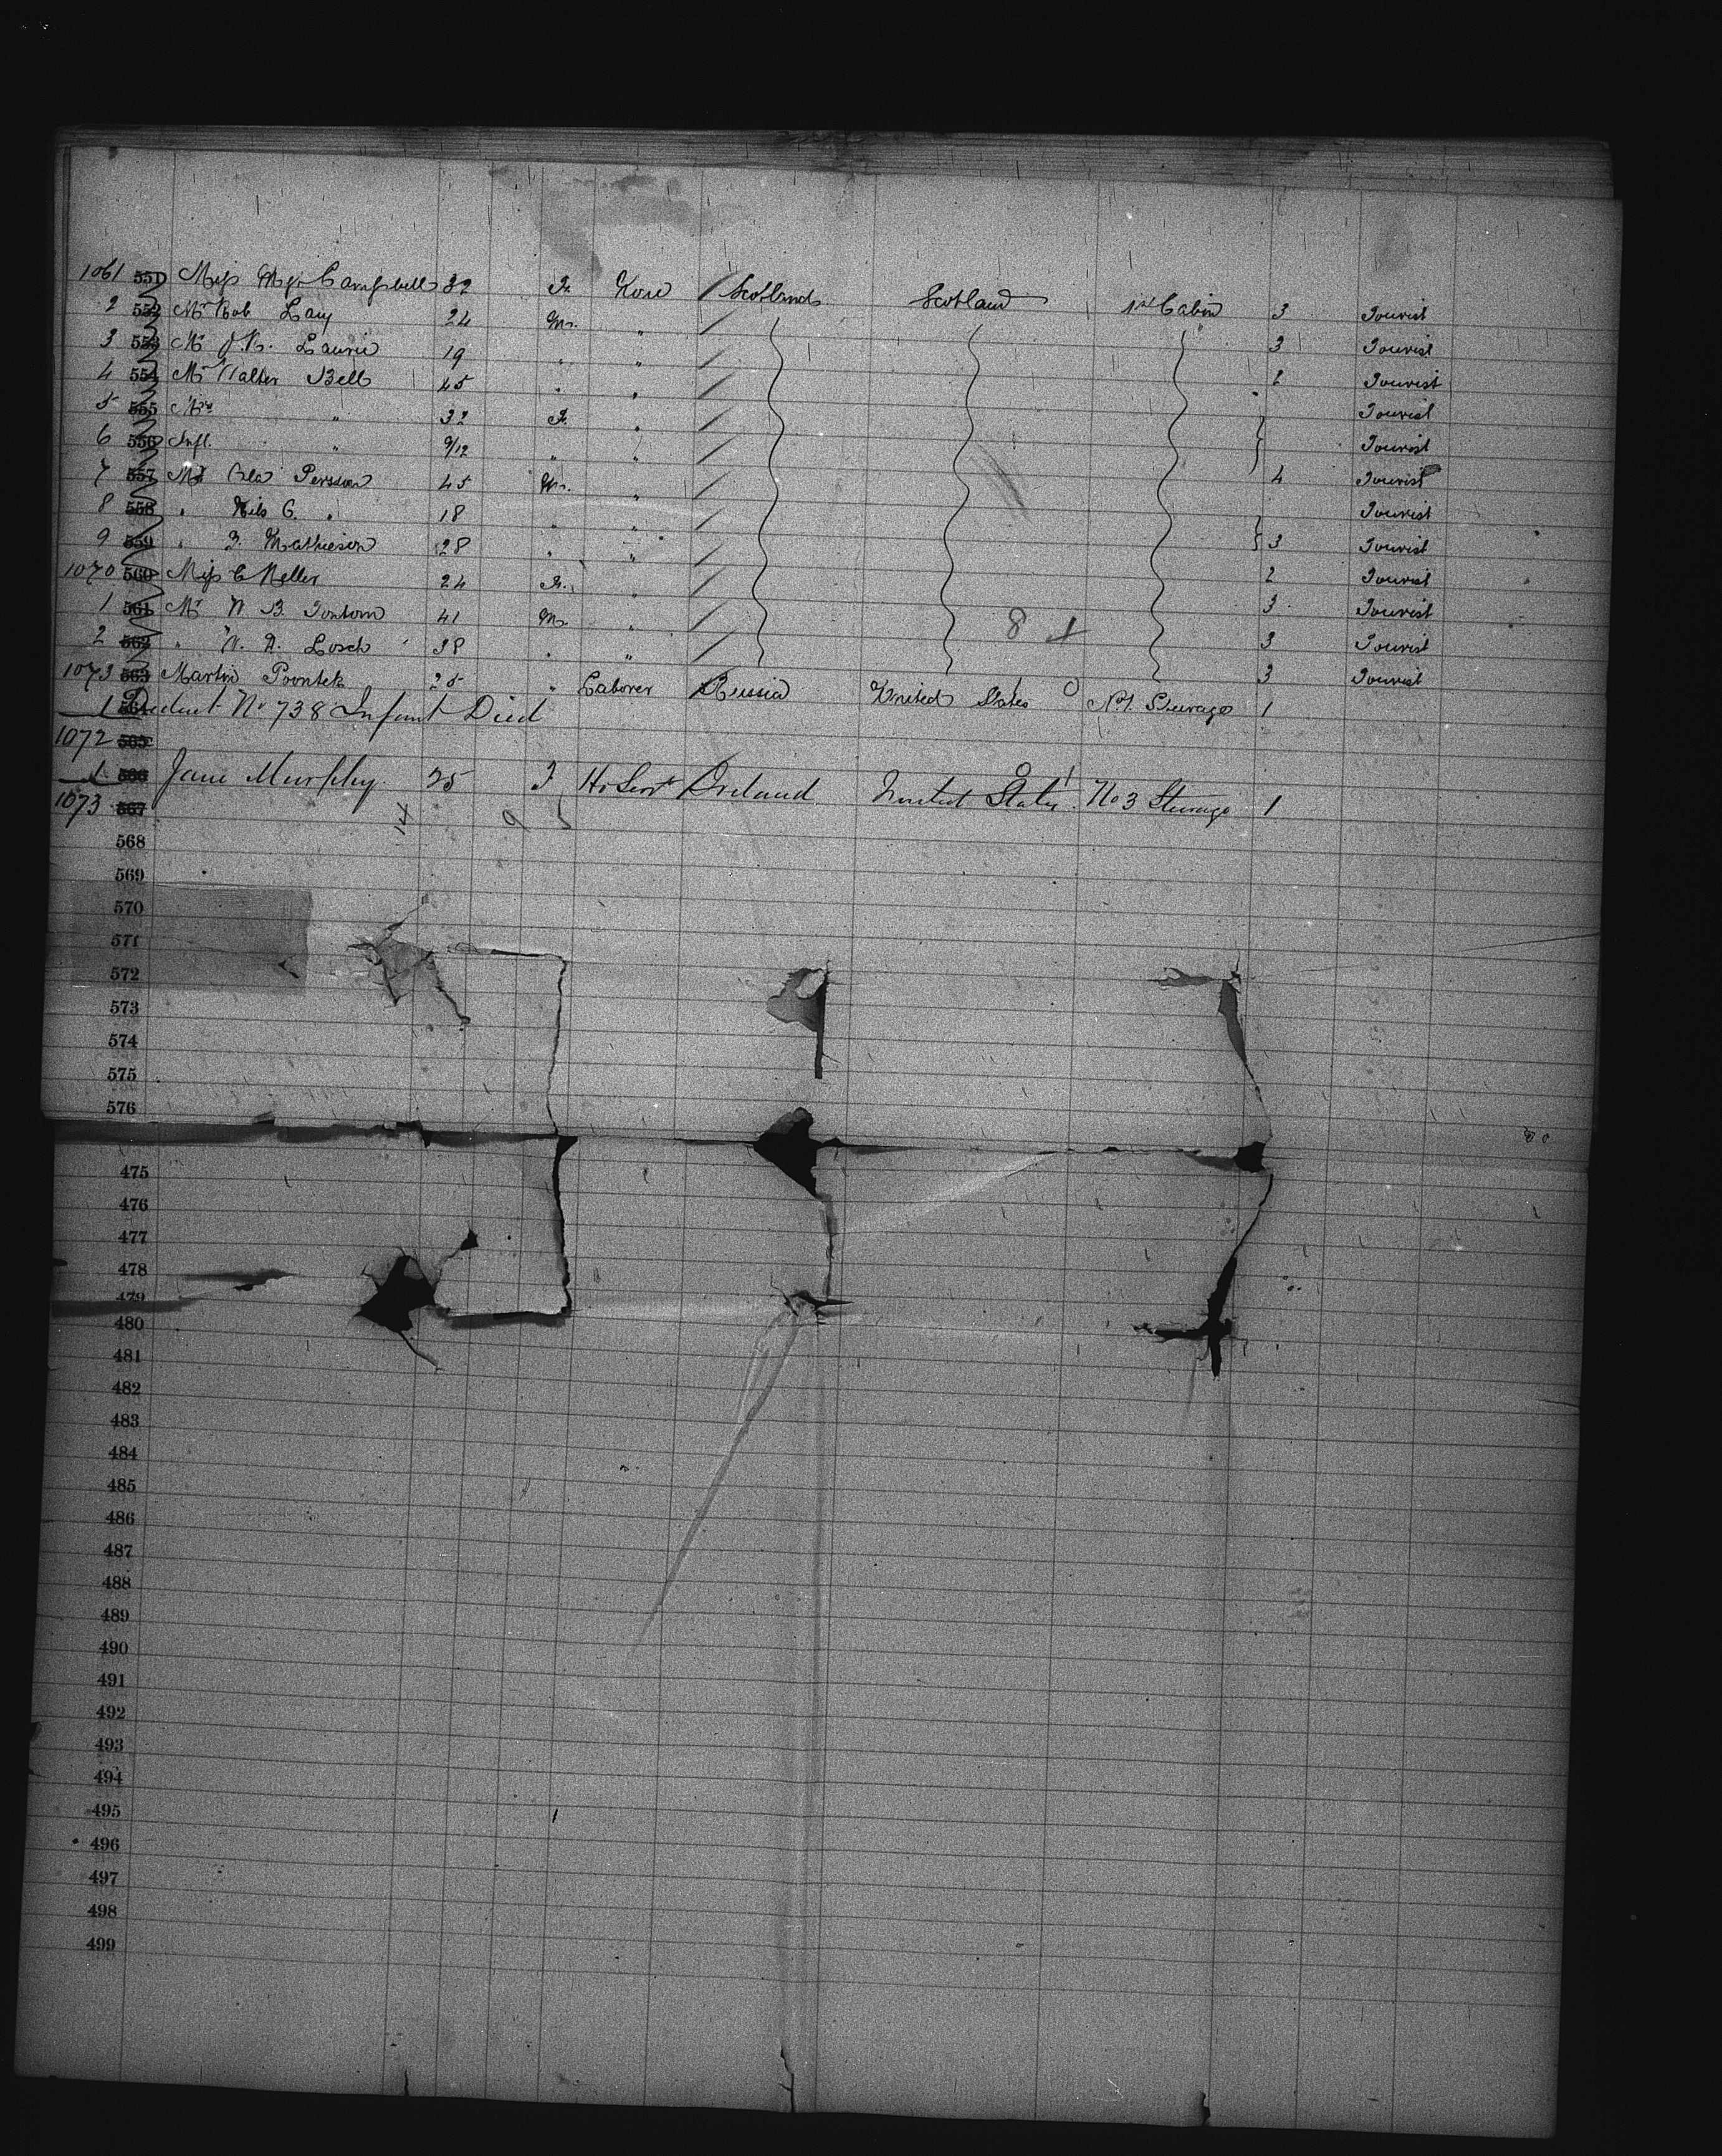 1061 551 Miss Campbell 32 F. None Scotland Scotland 1st Cabin 3 Tourist
2 552 Mr Rob 24 M. " 3 Tourist
3 553 Mr J.R. Laurie 19 " " 2 Tourist
4 554 Mr Walter Bell 45 " " Tourist
5 555 Mrs " 32 F. " Tourist
6 556 Inft. " 9/12 " " 4 Tourist
7 557 Mr Ola Persson 45 M. " Tourist
8 558 " Nils C. " 18 " " 3 Tourist
9 559 " Mathieson 28 " " 2 Tourist
1070 560 Miss C Keller 24 F. " 3 Tourist
1 561 Mr 41 M. " 8 3 Tourist
2 562 " Losch 38 " " 3 Tourist
1073 563 Martin 25 " Laborer Russia United States No 1. Steerage 1
1 564 Deduct No 738 Infant Died
1072 565
1 566 Jane Murphy 25 F H. Servt Ireland United States No 3 Steerage 1
1073 567
568
569
570
571
572
573
574
575
576
475
476
477
478
479
480
481
482
483
484
485
486
487
488
489
490
491
492
493
494
495
496
497
498
499